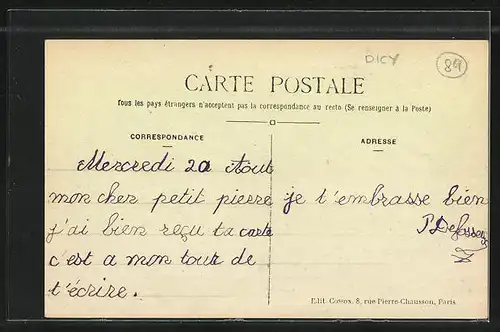 DICY
89
CARTE POSTALE
Tous les pays étrangers n'acceptent pas la correspondance au recto (Se renseigner à la Poste)
CORRESPONDANCE
ADRESSE
Mercredi 20 Aout
mon cher petit pierre
j'ai bien reçu ta carte
c'est a mon tour de
t'écrire.
je t'embrasse bien
Edit. Cossox. 8, rue Pierre-Chausson, Paris